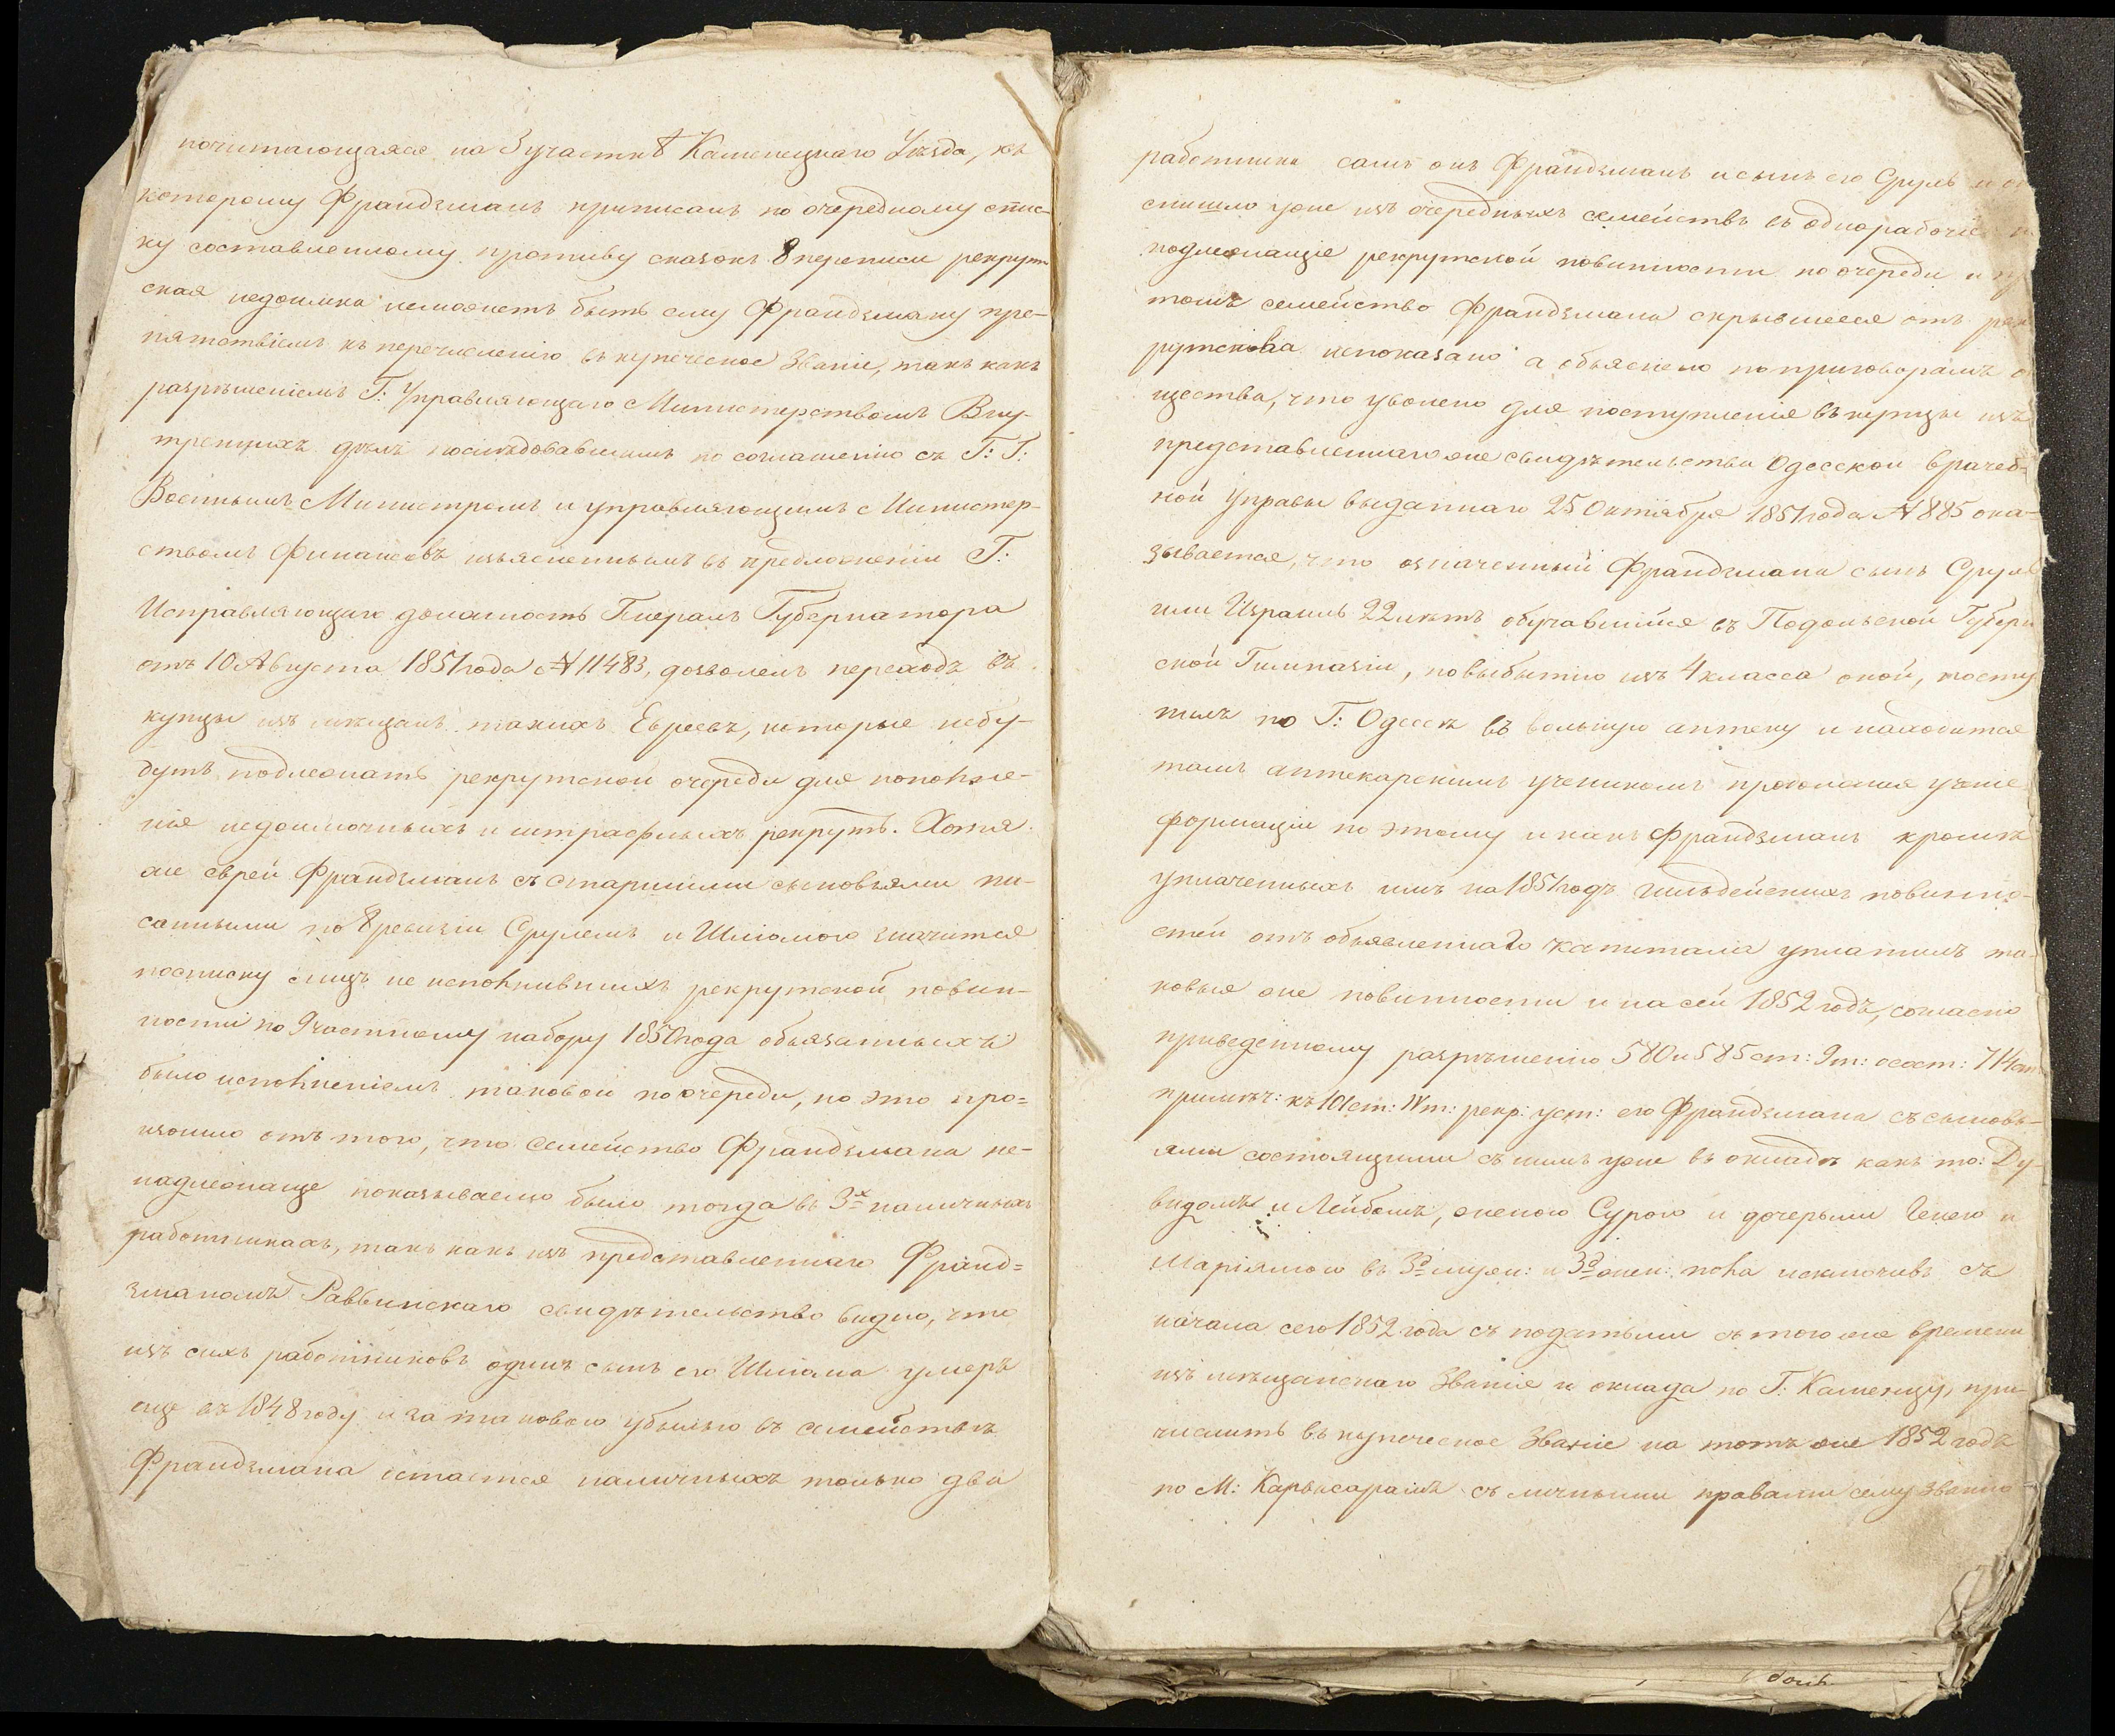 почитающаяся на 3 участкѣ Каменецкаго Уѣзда, къ
которому Франдзманъ приписанъ по очередному спис-
ку составленному противу сказокъ 8 переписи рекрут
ская недоимка неможетъ быть ему Франдзману пре-
пятствіемъ къ перечисленію въ купеческое званіе, такъ какъ
разрѣшеніемъ Г: Управляющаго Министерствомъ Вну-
треннихъ дѣлъ последовавшимъ по соглашенію съ Г: Г:
Военнымъ Министромъ и управляющимъ Министер-
ствомъ Финансовъ изъясненнымъ въ предложеніи Г:
Исправляющаго должность Генералъ Губернатора
отъ 10 Августа 1851 года № 11483, дозволенъ переходъ въ
купцы изъ мѣщанъ такихъ Евреевъ, которые небу-
дутъ подлежать рекрутской очереди для пополне-
нія недоимочныхъ и штрафныхъ рекрутъ. Хотя
же еврей Франдзманъ съ старшими сыновьями пи-
санными по 8 ревизіи Срулемъ и Шліомою значится
посписку лицъ не исполнившихъ рекрутской повин-
ности по 9 частному набору 1850 года обязанныхъ
было исполненіемъ таковой по очереди, но это про=
изошло отъ того, что семейство Франдзмана не-
надлежаще показываемо было тогда въ 3х наличныхъ
работникахъ, такъ какъ изъ представленнаго Франд=
зманомъ Раввинскаго свидѣтельство видно, что
изъ сихъ работниковъ одинъ сынъ его Шліома умеръ
еще въ 1848 году и за таковою убылью въ семействѣ
Франдзмана остается наличныхъ только два
работника самъ онъ Франдзманъ и сынъ его Сруль и
спишло уже изъ очередныхъ семействъ въ однорабочіе
подлежащіе рекрутской повинности по очереди и
томъ семейство Франдзмана скрывшееся отъ рек
рутства непоказано а объяснено поприговорамъ
щества, что уволено для поступленія въ купцы изъ
представленнагоже свидѣтельства Одесской врачеб-
ной Управы выданнаго 25 Октября 1851 года № 885 ока-
зывается, что означенный Франдзмана сынъ Сруль
или Израиль 22 лѣтъ обучавшійся въ Подольской Губерн
ской Гимназіи, повыбытію изъ 4 класса оной, посту
пилъ по Г: Одессѣ въ вольную аптеку и находится
тамъ аптекарскимъ ученикомъ продолжая ученіе
формаціи по этому и какъ Франдзманъ кромѣ
уплаченныхъ имъ на 1851 годъ гильдейскихъ повинно-
стей отъ объявленнаго капитала уплатилъ та-
ковыя же повинности и на сей 1852 годъ, согласно
приведенному разрѣшенію 580 и 585 ст: 9 т: осост: 714 ст
примѣч: къ 101 ст: IV т: рекр: уст: его Франдзмана съ сыновь-
ями состоящими съ нимъ уже въ окладѣ какъ то: Ду-
видомъ и Лейбомъ, женою Сурою и дочерьми Генею и
Маріямою въ 3о муж: и 3о жен: пола исключивъ съ
начала сего 1852 года съ податьми съ того же времени
изъ мѣщанскаго званія и оклада по Г: Каменцу, при-
числить въ купеческое званіе на тотъ же 1852 годъ
по М: Карвасарамъ съ личными правами сему званію